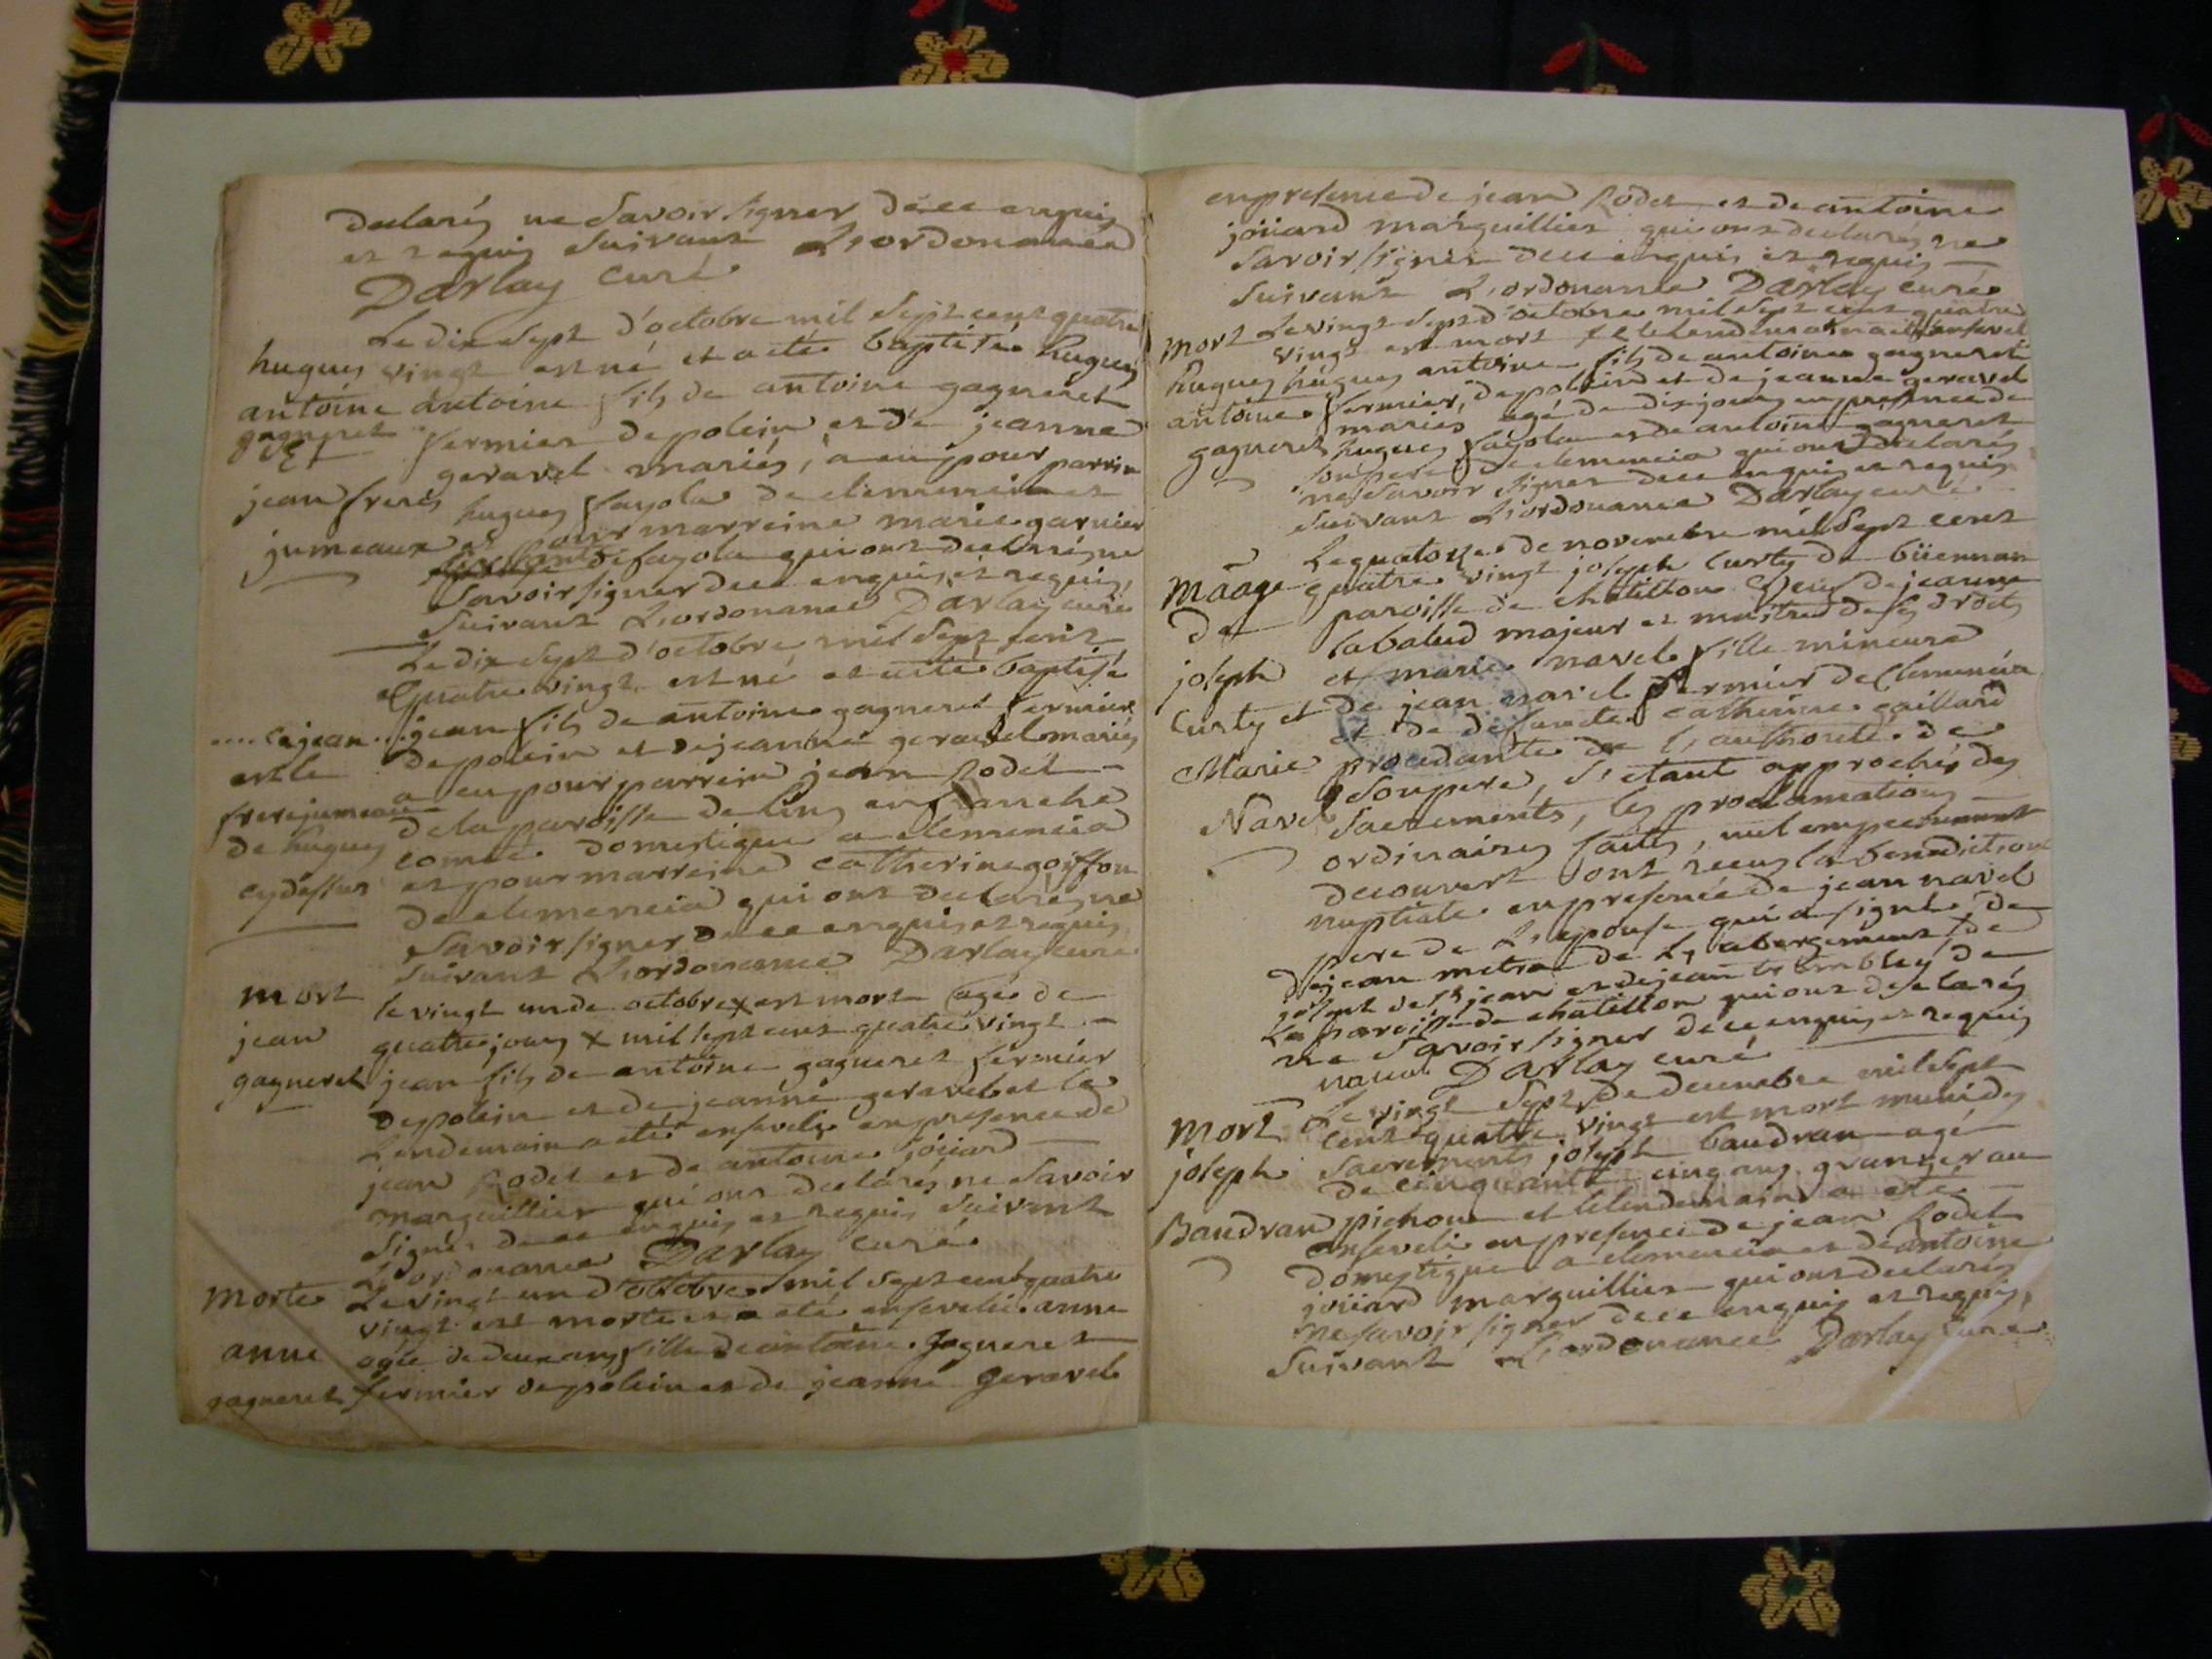 declarés ne savoir signer de ce enquis
et requis suivant L'ordonance
Darlay curé
Le dix sept d'octobre mil sept cent quatre
hugues vingt est né et a été baptisé hugues
antoine antoine fils de antoine gagneret
gagneret fermier de polein et de jeanne
geravel mariés, a eu pour parrin
jean freres hugues fayola de clemencia et
jumeaux et pour marreine marie garnier
de fayola qui ont declaré ne
savoir signer de ce enquis et requis,
suivant L'ordonance Darlay curé
Le dix sept d'octobre mil sept cent
quatre vingt est né et a été baptisé
.... ce jean jean fils de antoine gagneret fermier
est le de polein et de jeanne geravel mariés
a eu pour parrein jean Rodet
frere jumeau de la paroisse de
de hugues comté domestique a clemencia
cy dessus et pour marreine catherine goiffon
de clemencia qui ont declaré ne
savoir signer de ce enquis et requis
suivant L'ordonance Darlay curé
mort le vingt un de octobre x est mort agé de
jean quatre jours x mil sept cent quatre vingt
gagneret jean fils de antoine gagneret fermier
de polein et de jeanne geravel et le
Lendemain a été enseveli en presence de
jean Rodet et de antoine joüard
marguillier qui ont declarés ne savoir
signer de ce enquis et requis suivant
L'ordonance Darlay curé
morte Le vingt un d'octobre mil sept cent quatre
vingt est morte et a été ensevelie anne
anne agée de deux ans fille de antoine gagneret
gagneret fermier de polein et de jeanne geravel
en presence de jean Rodet et de antoine
joüard marguillier qui ont declarés ne
savoir signer de ce enquis et requis
suivant L'ordonance Darlay curé
mort Le vingt sept d'octobre mil sept cent quatre
vingt est mort et le lendemain a été enseveli
hugues hugues antoine fils de antoine gagneret
antoine fermier, de polein et de jeanne geravel
mariés agé de dix jours en presence de
gagneret hugues fayola et de antoine gagneret
son pere de clemencia qui ont declarés
ne savoir signer de ce enquis et requis
suivant L'ordonance Darlay curé
Le quatorze de novembre mil sept cent
mãage quatre vingt joseph Curty de büennan
de paroisse de chatillon veuf de jeanne
labalud majeur et maitre de ses droits
joseph et marie navel fille mineure
Curty et de jean navel fermier de Clemencia
et de defuncte catherine gaillard
Marie procedante de l'authorité de
son pere, s'etant approchés des
Navel sacrements, les proclamations
ordinaires faites, nul empechement
decouvert ont recus la benediction
nuptiale en presence de jean navel
pere de L'epouse qui a signé, de
jean metra de L'abergement de
joseph de st jean et de jean tremblay de
La paroisse de chatillon qui ont declarés
ne savoir signer de ce enquis et requis
navel Darlay curé
mort Le vingt sept de decembre mil sept
cent quatre vingt est mort muni des
joseph sacrements joseph baudran agé
de cinquante cinq ans granger au
Baudran pichon et le lendemain a été
enseveli en presence de jean Rodet
domestique a clemencia et de antoine
joüard marguillier qui ont declarés
ne savoir signer de ce enquis et requis,
suivant L'ordonance Darlay curé